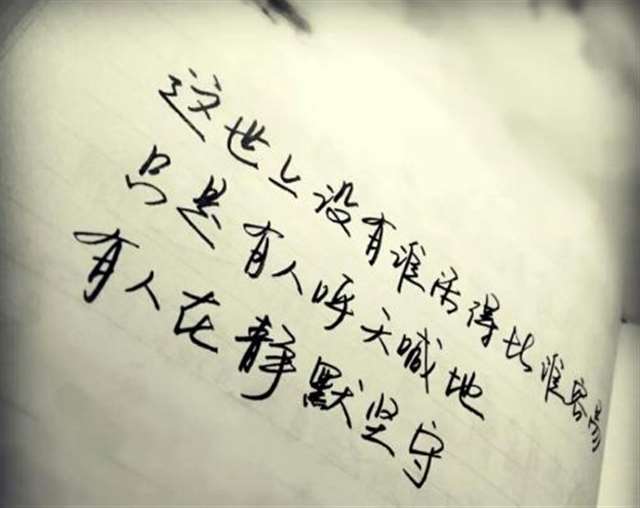 这世上没有谁活得比谁容易
只是有人呼天喊地
有人在静默坚守